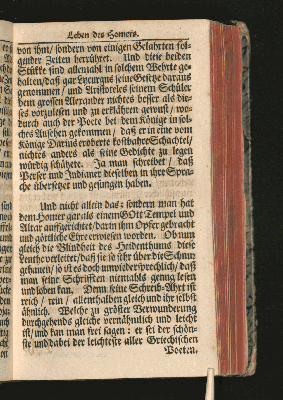 Leben des Homers.
von ihm/ sondern von einigen Gelahrten fol-
gender Zeiten herrühret. Und diese beiden
Stükke sind allemahl in solchem Wehrte ge-
halten/ daß gar Lycurgus seine Gesetze daraus
genommen/ und Aristoteles seinem Schüler
dem grossen Alexander nichtes besser als die-
ses vorzulesen und zu erklähren gewust/ wo-
durch auch der Poete bei dem Könige in solch-
es Ansehen gekommen/ daß er in eine vom
Könige Darius eroberte kostbahre Schachtel/
nichtes anders als seine Gedichte zu legen
würdig schätzete. Ja man schreibet/ daß
Perser und Indianer dieselben in ihre Spra-
che übersetzet und gesungen haben.
Und nicht allein das: sondern man hat
dem Homer gar als einem GOtt Tempel und
Altar aufgerichtet/ darin ihm Opfer gebracht
und göttliche Ehre erwiesen worden. Ob nun
gleich die Blindheit des Heidenthums diese
Leute verleitet/ daß sie so sehr über die Schnur
gehauen/ so ist es doch unwiedersprechlich/ daß
man seine Schriften niemahls genug lesen
und loben kan. Denn seine Schreib-Ahrt ist
rich/ rein/ allenthalben gleich und ihr selbst
ähnlich. Welche zu größter Verwunderung
durchgehends gleiche vernähmlich und leicht
ist/ und kan man frei sagen: er sei der schön-
ste und dabei der leichteste aller Griechischen
Poeten.